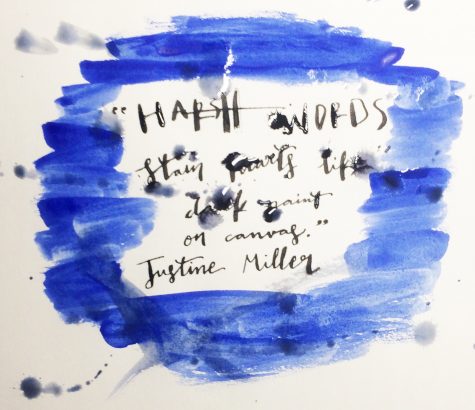 "HARSH WORDS
stain hearts like
dark paint
on canvas."
Justine Miller